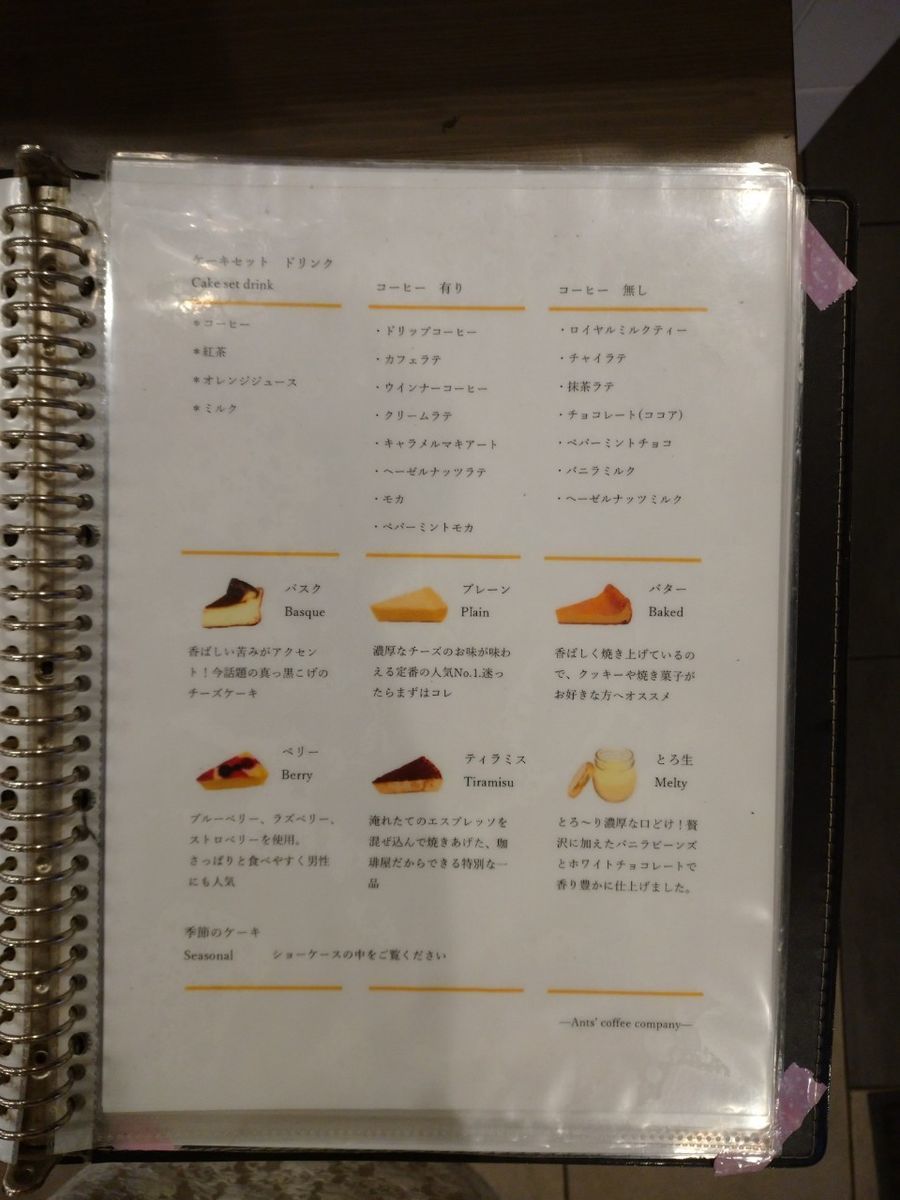 ケーキセット ドリンク
Cake set drink
＊コーヒー
＊紅茶
＊オレンジジュース
＊ミルク
コーヒー 有り
・ドリップコーヒー
・カフェラテ
・ウインナーコーヒー
・クリームラテ
・キャラメルマキアート
・ヘーゼルナッツラテ
・モカ
・ペパーミントモカ
コーヒー 無し
・ロイヤルミルクティー
・チャイラテ
・抹茶ラテ
・チョコレート(ココア)
・ペパーミントチョコ
・バニラミルク
・ヘーゼルナッツミルク
バスク
Basque
香ばしい苦みがアクセン
ト！今話題の真っ黒こげの
チーズケーキ
プレーン
Plain
濃厚なチーズのお味が味わ
える定番の人気No.1.迷っ
たらまずはコレ
バター
Baked
香ばしく焼き上げているの
で、クッキーや焼き菓子が
お好きな方へオススメ
ベリー
Berry
ブルーベリー、ラズベリー、
ストロベリーを使用。
さっぱりと食べやすく男性
にも人気
ティラミス
Tiramisu
淹れたてのエスプレッソを
混ぜ込んで焼きあげた、珈
琲屋だからできる特別な一
品
とろ生
Melty
とろ〜り濃厚な口どけ！贅
沢に加えたバニラビーンズ
とホワイトチョコレートで
香り豊かに仕上げました。
季節のケーキ
Seasonal ショーケースの中をご覧ください
—Ants' coffee company—